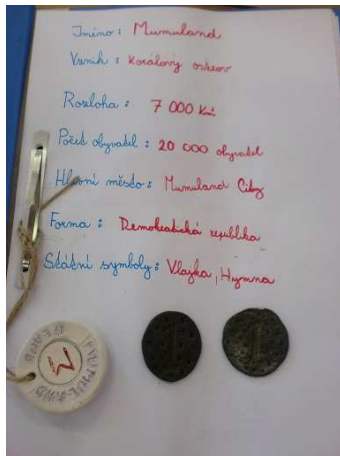 Jméno: Mumuland
Vznik: Korálový ostrov
Rozloha: 7 000 Km
Počet obyvatel: 20 000 obyvatel
Hlavní město: Mumuland City
Forma: Demokratická republika
Státní symboly: Vlajka, Hymna
1
1